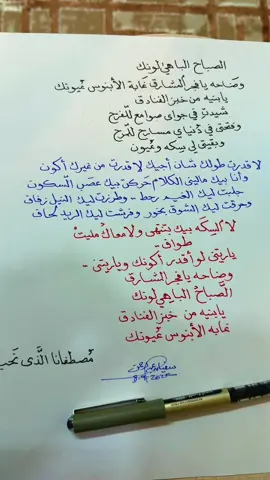 الصباح الباهي لونك
وضاحه يا فجر الشارق غابة الأبنوس عيونك
يا بنيه من خبز الفنادق
شيدتِ في جواي صوامع للفرح
وفتحتِ في دنياي مسارح للمرح
وبقيتي لي سكه وعيون
لا قدرت أطولك شان أجيك لا قدرت من غيرك أكون
وأنا بيك ماليني الكلام حركن بيك عصب السكون
جلبت ليك الغيم رحط - وطرزت ليك النيل زفاف
وحرقت ليك الشوق بخور وفرشت ليك الريد لحاف
لا السكه بيك بتنتهي ولا معاك مليت
طواف -
يا ريتني لو أقدر أكونك ويا ريتني -
وضاحه يا فجر الشارق
الصباح الباهي لونك
يا بنيه من خبز الفنادق
غابه الأبنوس عيونك
مصطفانا الذي